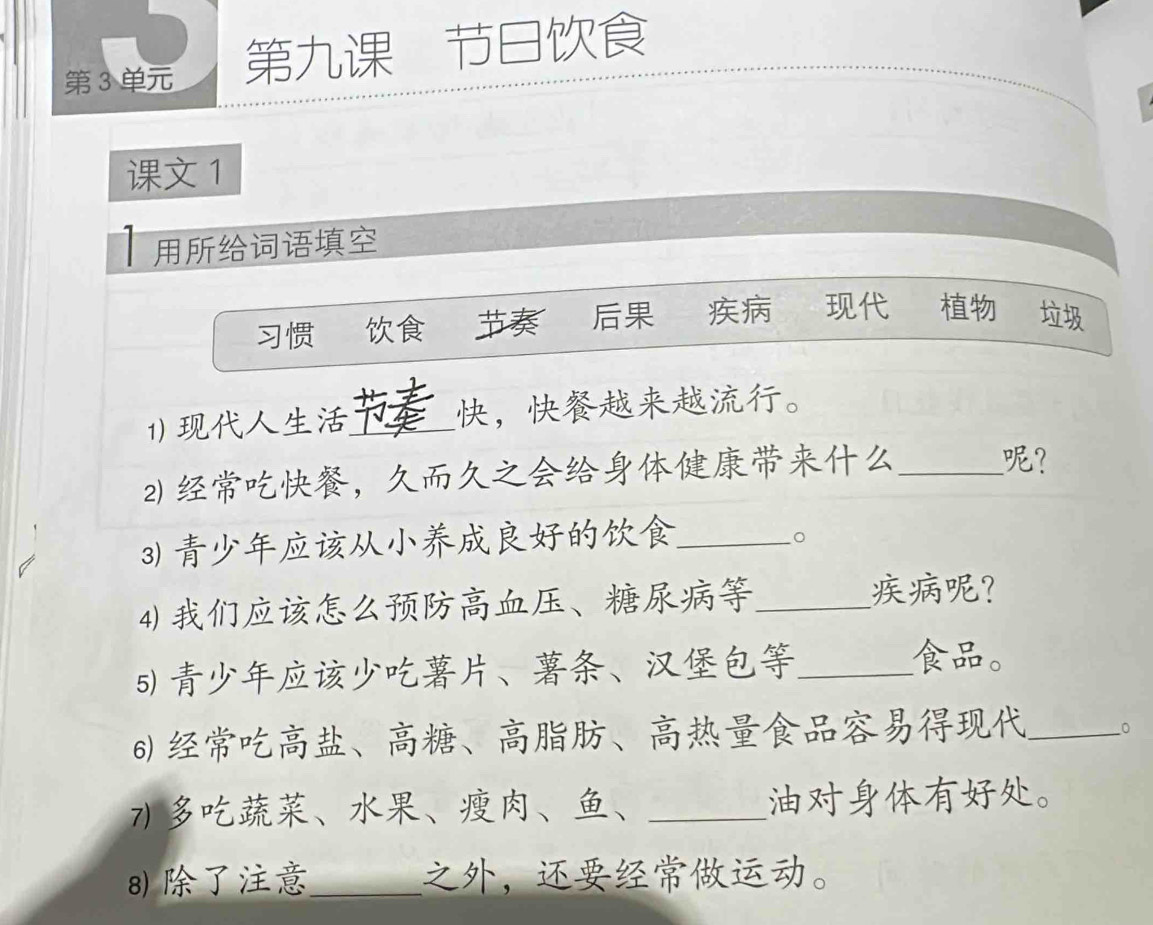 第3单元
第九课 节日饮食
课文1
1 用所给词语填空
习惯 饮食 节奏 后果 疾病 现代 植物 垃圾
1) 现代人生活节奏快，快餐越来越流行。
2) 经常吃快餐，久而久之会给身体健康带来什么______呢？
3) 青少年应该从小养成良好的饮食______。
4) 我们应该怎么预防高血压、糖尿病等______疾病呢？
5) 青少年应该少吃薯片、薯条、汉堡包等______食品。
6) 经常吃高盐、高糖、高脂肪、高热量食品容易得现代______。
7) 多吃蔬菜、水果、瘦肉、鱼、______油对身体有好处。
8) 除了注意______之外，还要经常做运动。